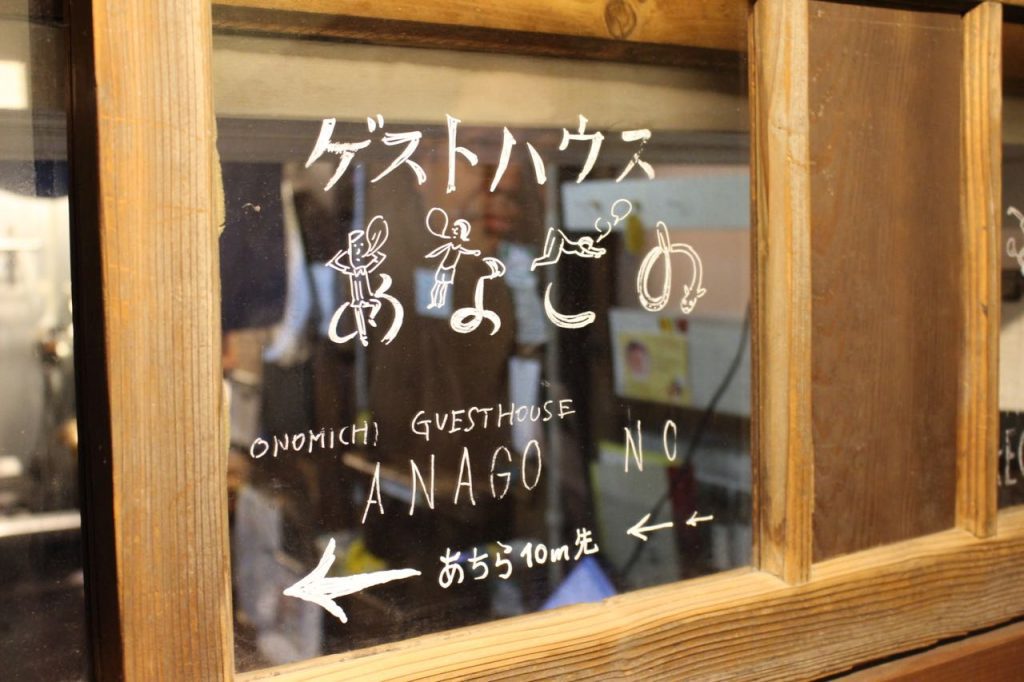 ゲストハウス
あなごの
ONOMICHI GUESTHOUSE
ANAGO NO
あちら10m先